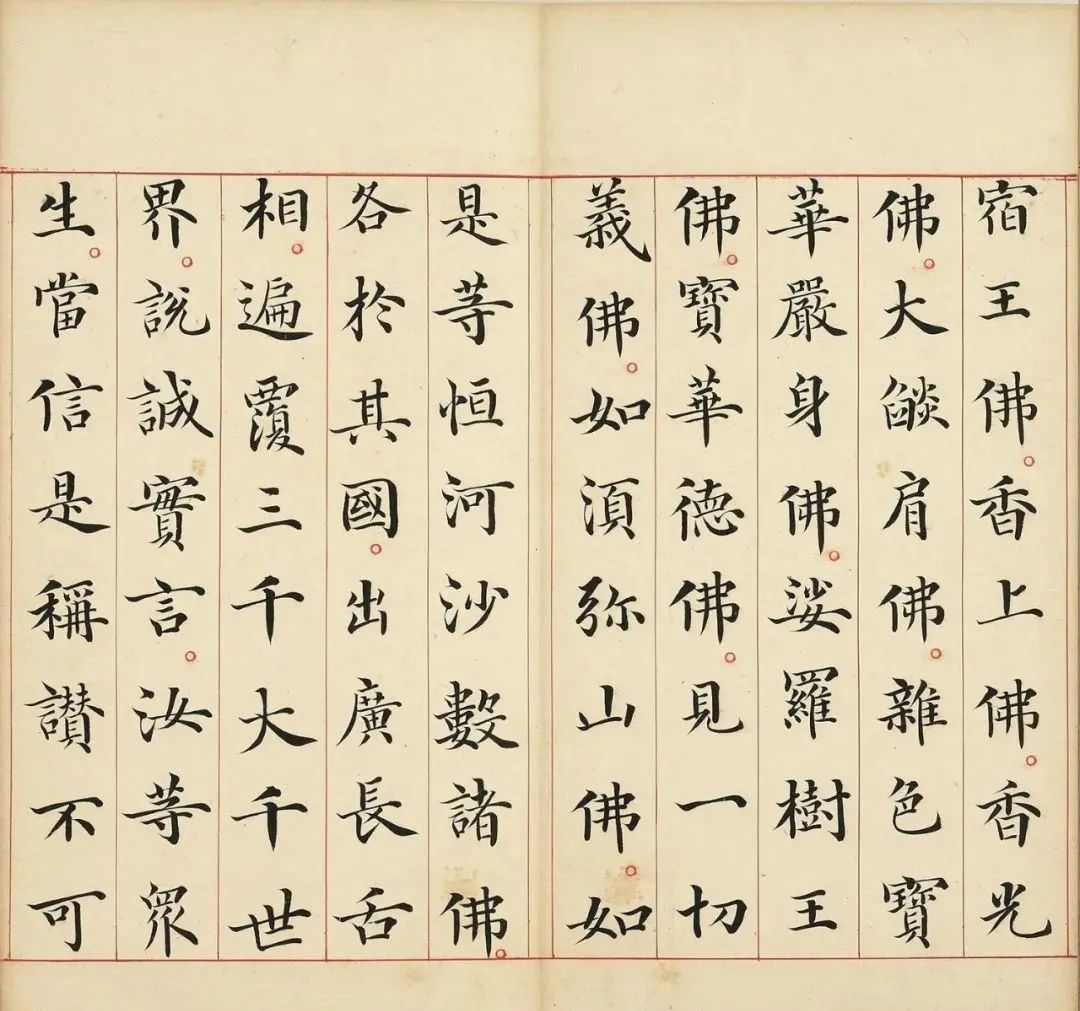 宿王佛。香上佛。香光
佛。大燄肩佛。雜色寶
華嚴身佛。娑羅樹王
佛。寶華德佛。見一切
義佛。如須弥山佛。如
是等恒河沙數諸佛。
各於其國。出廣長舌
相。遍覆三千大千世
界。說誠實言。汝等眾
生。當信是稱讚不可